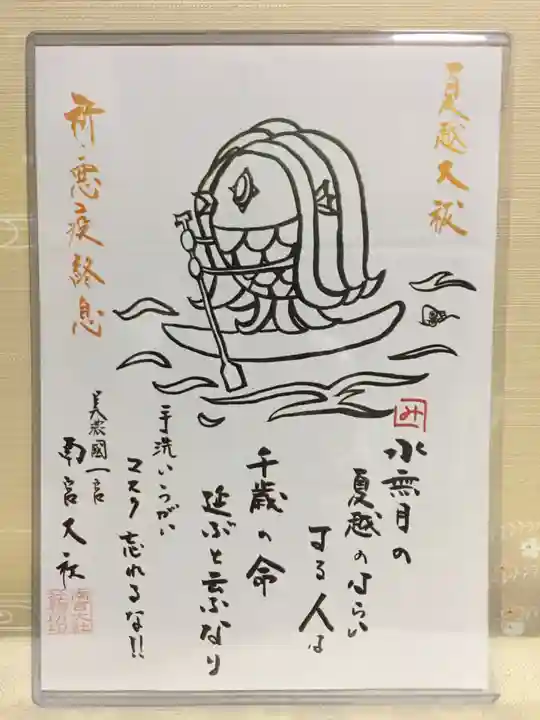 夏越大祓
祈 悪疫終息
み
水無月の
夏越のはらい
する人は
千歳の命
延ぶと云ふなり
手洗いうがい
マスク忘れるな!!
美濃國一宮
南宮大社